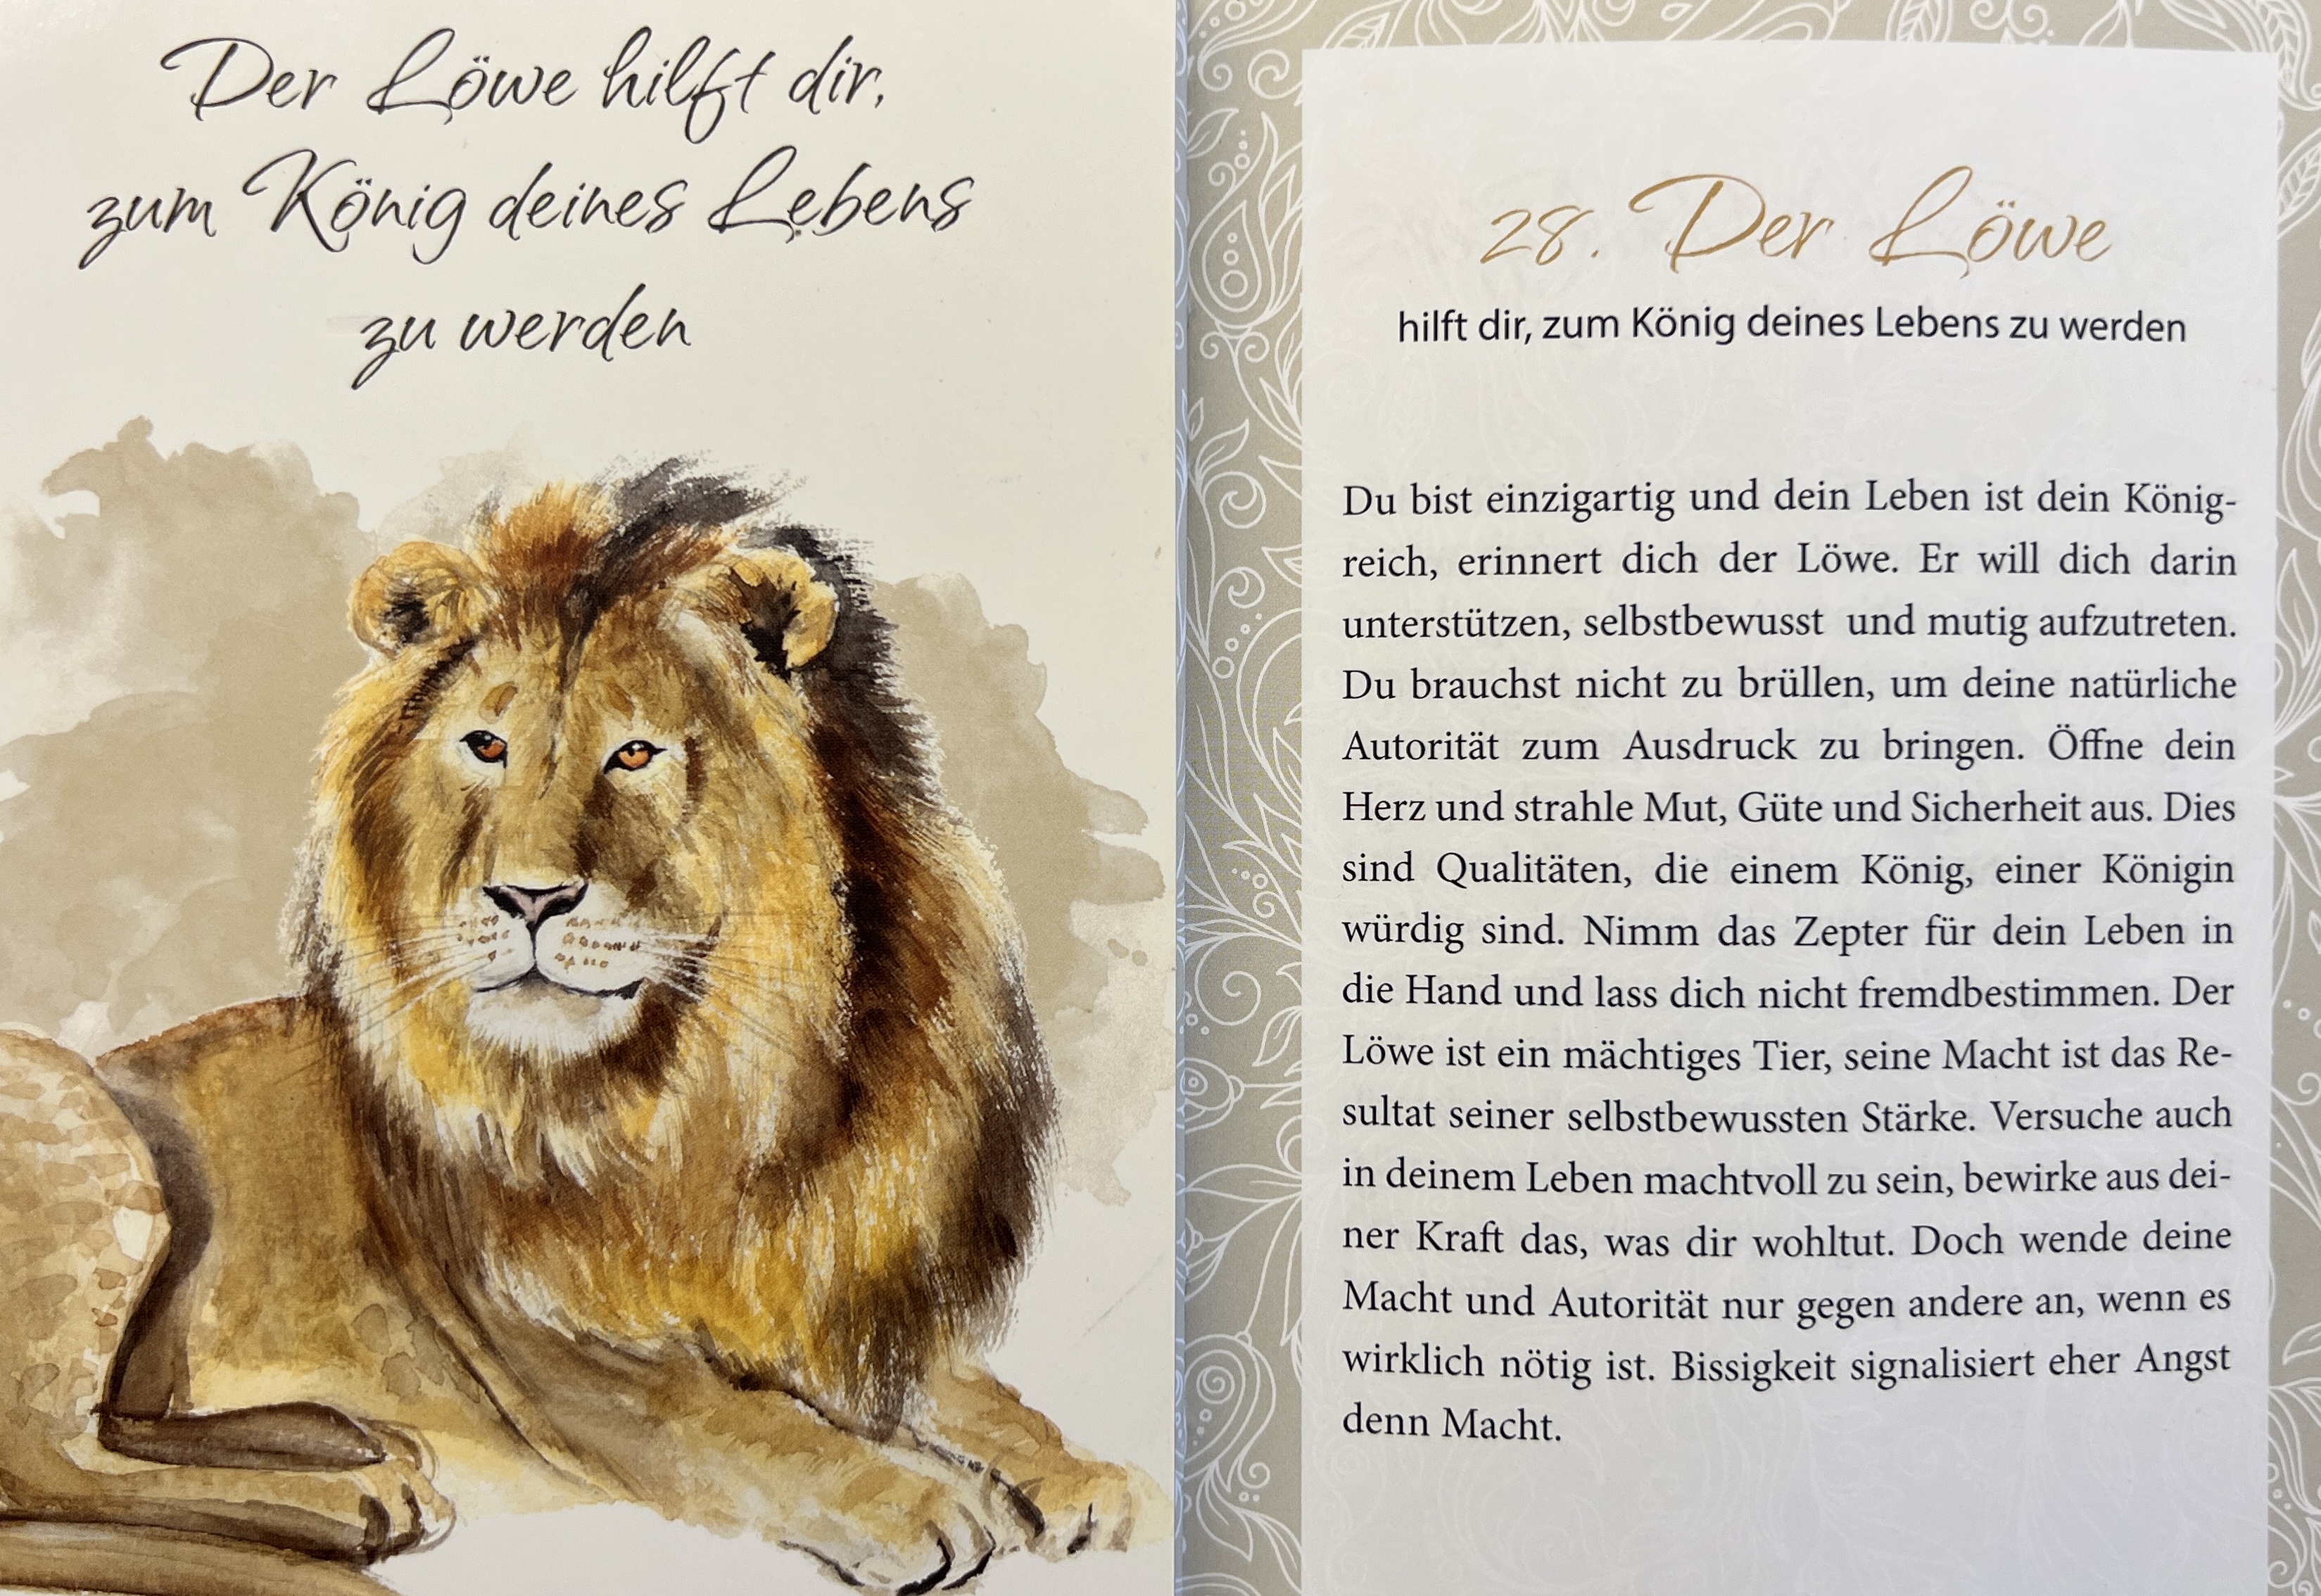 Der Löwe hilft dir,
zum König deines Lebens
zu werden
28. Der Löwe
hilft dir, zum König deines Lebens zu werden
Du bist einzigartig und dein Leben ist dein König-
reich, erinnert dich der Löwe. Er will dich darin
unterstützen, selbstbewusst und mutig aufzutreten.
Du brauchst nicht zu brüllen, um deine natürliche
Autorität zum Ausdruck zu bringen. Öffne dein
Herz und strahle Mut, Güte und Sicherheit aus. Dies
sind Qualitäten, die einem König, einer Königin
würdig sind. Nimm das Zepter für dein Leben in
die Hand und lass dich nicht fremdbestimmen. Der
Löwe ist ein mächtiges Tier, seine Macht ist das Re-
sultat seiner selbstbewussten Stärke. Versuche auch
in deinem Leben machtvoll zu sein, bewirke aus dei-
ner Kraft das, was dir wohltut. Doch wende deine
Macht und Autorität nur gegen andere an, wenn es
wirklich nötig ist. Bissigkeit signalisiert eher Angst
denn Macht.